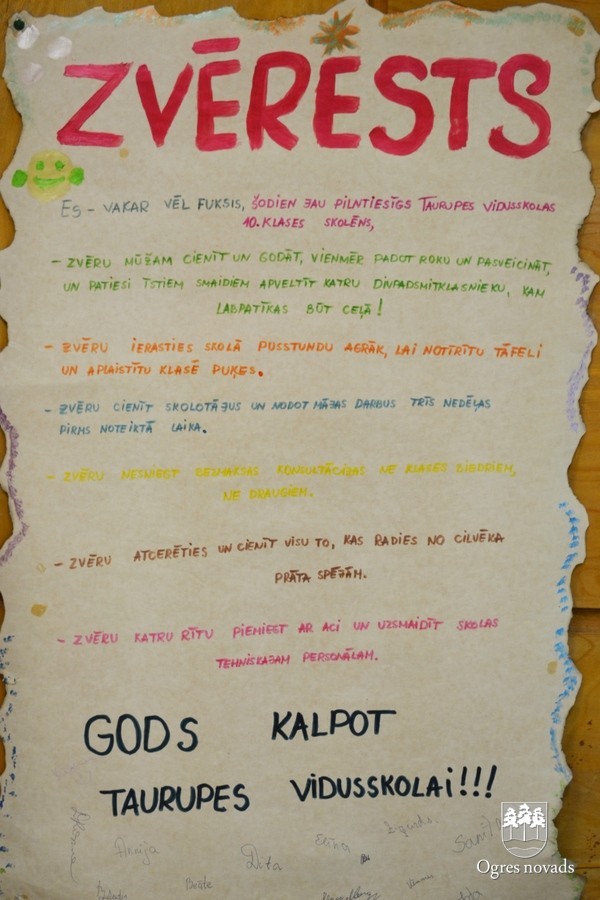 ZVĒRESTS
ES - VAKAR VĒL FUKSIS, ŠODIEN JAU PILNTIESĪGS TAURUPES VIDUSSKOLAS
10. KLASES SKOLĒNS,
- ZVĒRU MŪŽAM CIENĪT UN GODĀT, VIENMĒR PADOT ROKU UN PASVEICINĀT,
UN PATIESI ĪSTIEM SMAIDIEM APVELTĪT KATRU DIVPADSMITKLASNIEKU, KAM
LABPATĪKAS BŪT CEĻĀ!
- ZVĒRU IERASTIES SKOLĀ PUSSTUNDU AGRĀK, LAI NOTĪRĪTU TĀFELI
UN APLAISTĪTU KLASĒ PUĶES.
- ZVĒRU CIENĪT SKOLOTĀJUS UN NODOT MĀJAS DARBUS TRĪS NEDĒĻAS
PIRMS NOTEIKTĀ LAIKA.
- ZVĒRU NESNIEGT BEZMAKSAS KONSULTĀCIJAS NE KLASES BIEDRIEM,
NE DRAUGIEM.
- ZVĒRU ATCERĒTIES UN CIENĪT VISU TO, KAS RADIES NO CILVĒKA
PRĀTA SPĒJĀM.
- ZVĒRU KATRU RĪTU PIEMIEGT AR ACI UN UZSMAIDĪT SKOLAS
TEHNISKAJAM PERSONĀLAM.
GODS KALPOT
TAURUPES VIDUSSKOLAI!!!
Elīna
Dita
Beāte
Ogres novads